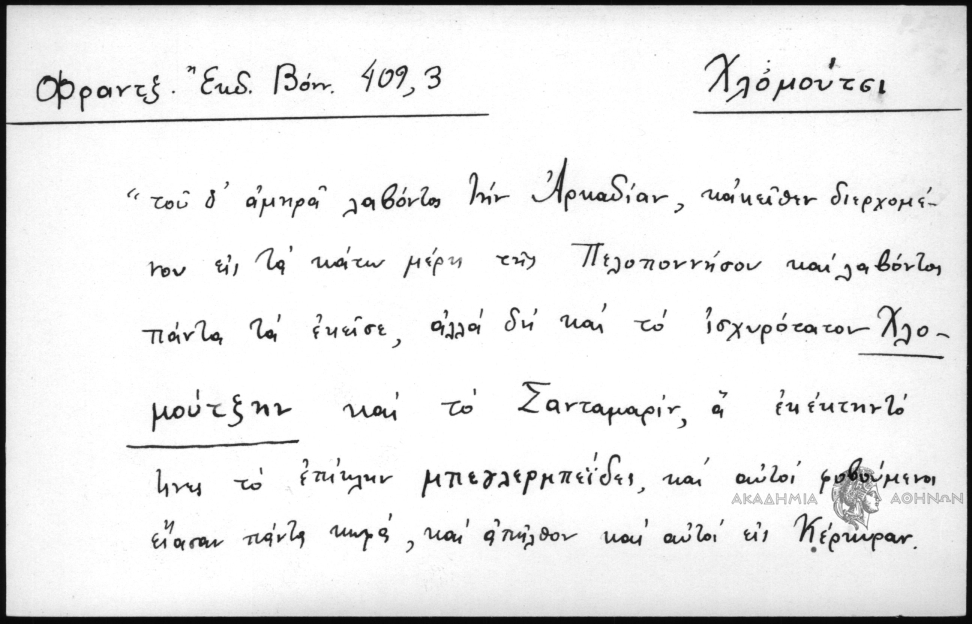 Φραντζ. Ἔκδ. Βόνν. 409, 3
Χλομούτσι
"τοῦ δ' ἀμηρᾶ λαβόντος τὴν Ἀρκαδίαν, κἀκεῖθεν διερχομέ-
νου εἰς τὰ κάτω μέρη τῆς Πελοποννήσου καὶ λαβόντος
πάντα τὰ ἐκεῖσε, ἀλλὰ δὴ καὶ τὸ ἰσχυρότατον Χλο-
μούτζην καὶ τὸ Σανταμαρίν, ἃ ἐκέκτηντό
τινες τὸ ἐπίκλην μπεγλερμπεΐδες, καὶ αὐτοὶ φοβούμενοι
εἴασαν πάντα, καὶ ἀπῆλθον καὶ αὐτοὶ εἰς Κέρκυραν.
ΑΚΑΔΗΜΙΑ ΑΘΗΝΩΝ